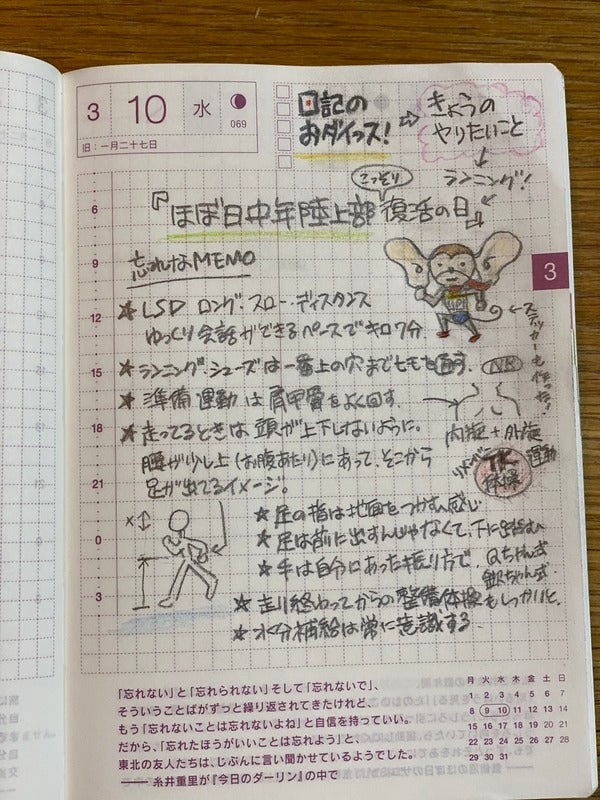 3 10 水
069
旧:一月二十七日
日記の
おダイっス!
⇒
きょうの
やりたいこと
↓
ランニング!
こっそり
『ほぼ日中年陸上部復活の日』
忘れなMEMO
★ LSD ロング・スロー・ディスタンス
ゆっくり会話ができるペースでキロ7分.
ステッカーも作った!
★ ランニング・シューズは一番上の穴までヒモを通す.
★ 準備運動は肩甲骨をよく回す.
内旋+外旋
運動
リメンバー
TK
体操
★ 走ってるときは頭が上下しないように。
腰が少し上(お腹あたり)にあって、そこから
足が出てるイメージ。
★ 足の指は地面をつかむ感じ
★ 足は前に出すんじゃなくて、下に
★ 手は自分にあった振り方で.
Qちゃん式
欽ちゃん式.
★ 走り終わってからの整備体操もしっかりと.
★ 水分補給は常に意識する.
6
9
12
15
18
21
0
3
3
「忘れない」と「忘れられない」そして「忘れないで」、
そういうことばがずっと繰り返されてきたけれど、
もう「忘れないことは忘れないよね」と自信を持っていい。
だから、「忘れたほうがいいことは忘れよう」と、
東北の友人たちは、じぶんに言い聞かせているようでした。
―― 糸井重里が『今日のダーリン』の中で
月 火 水 木 金 土 日
1 2 3 4 5 6 7
8 9 10 11 12 13 14
15 16 17 18 19 20 21
22 23 24 25 26 27 28
29 30 31